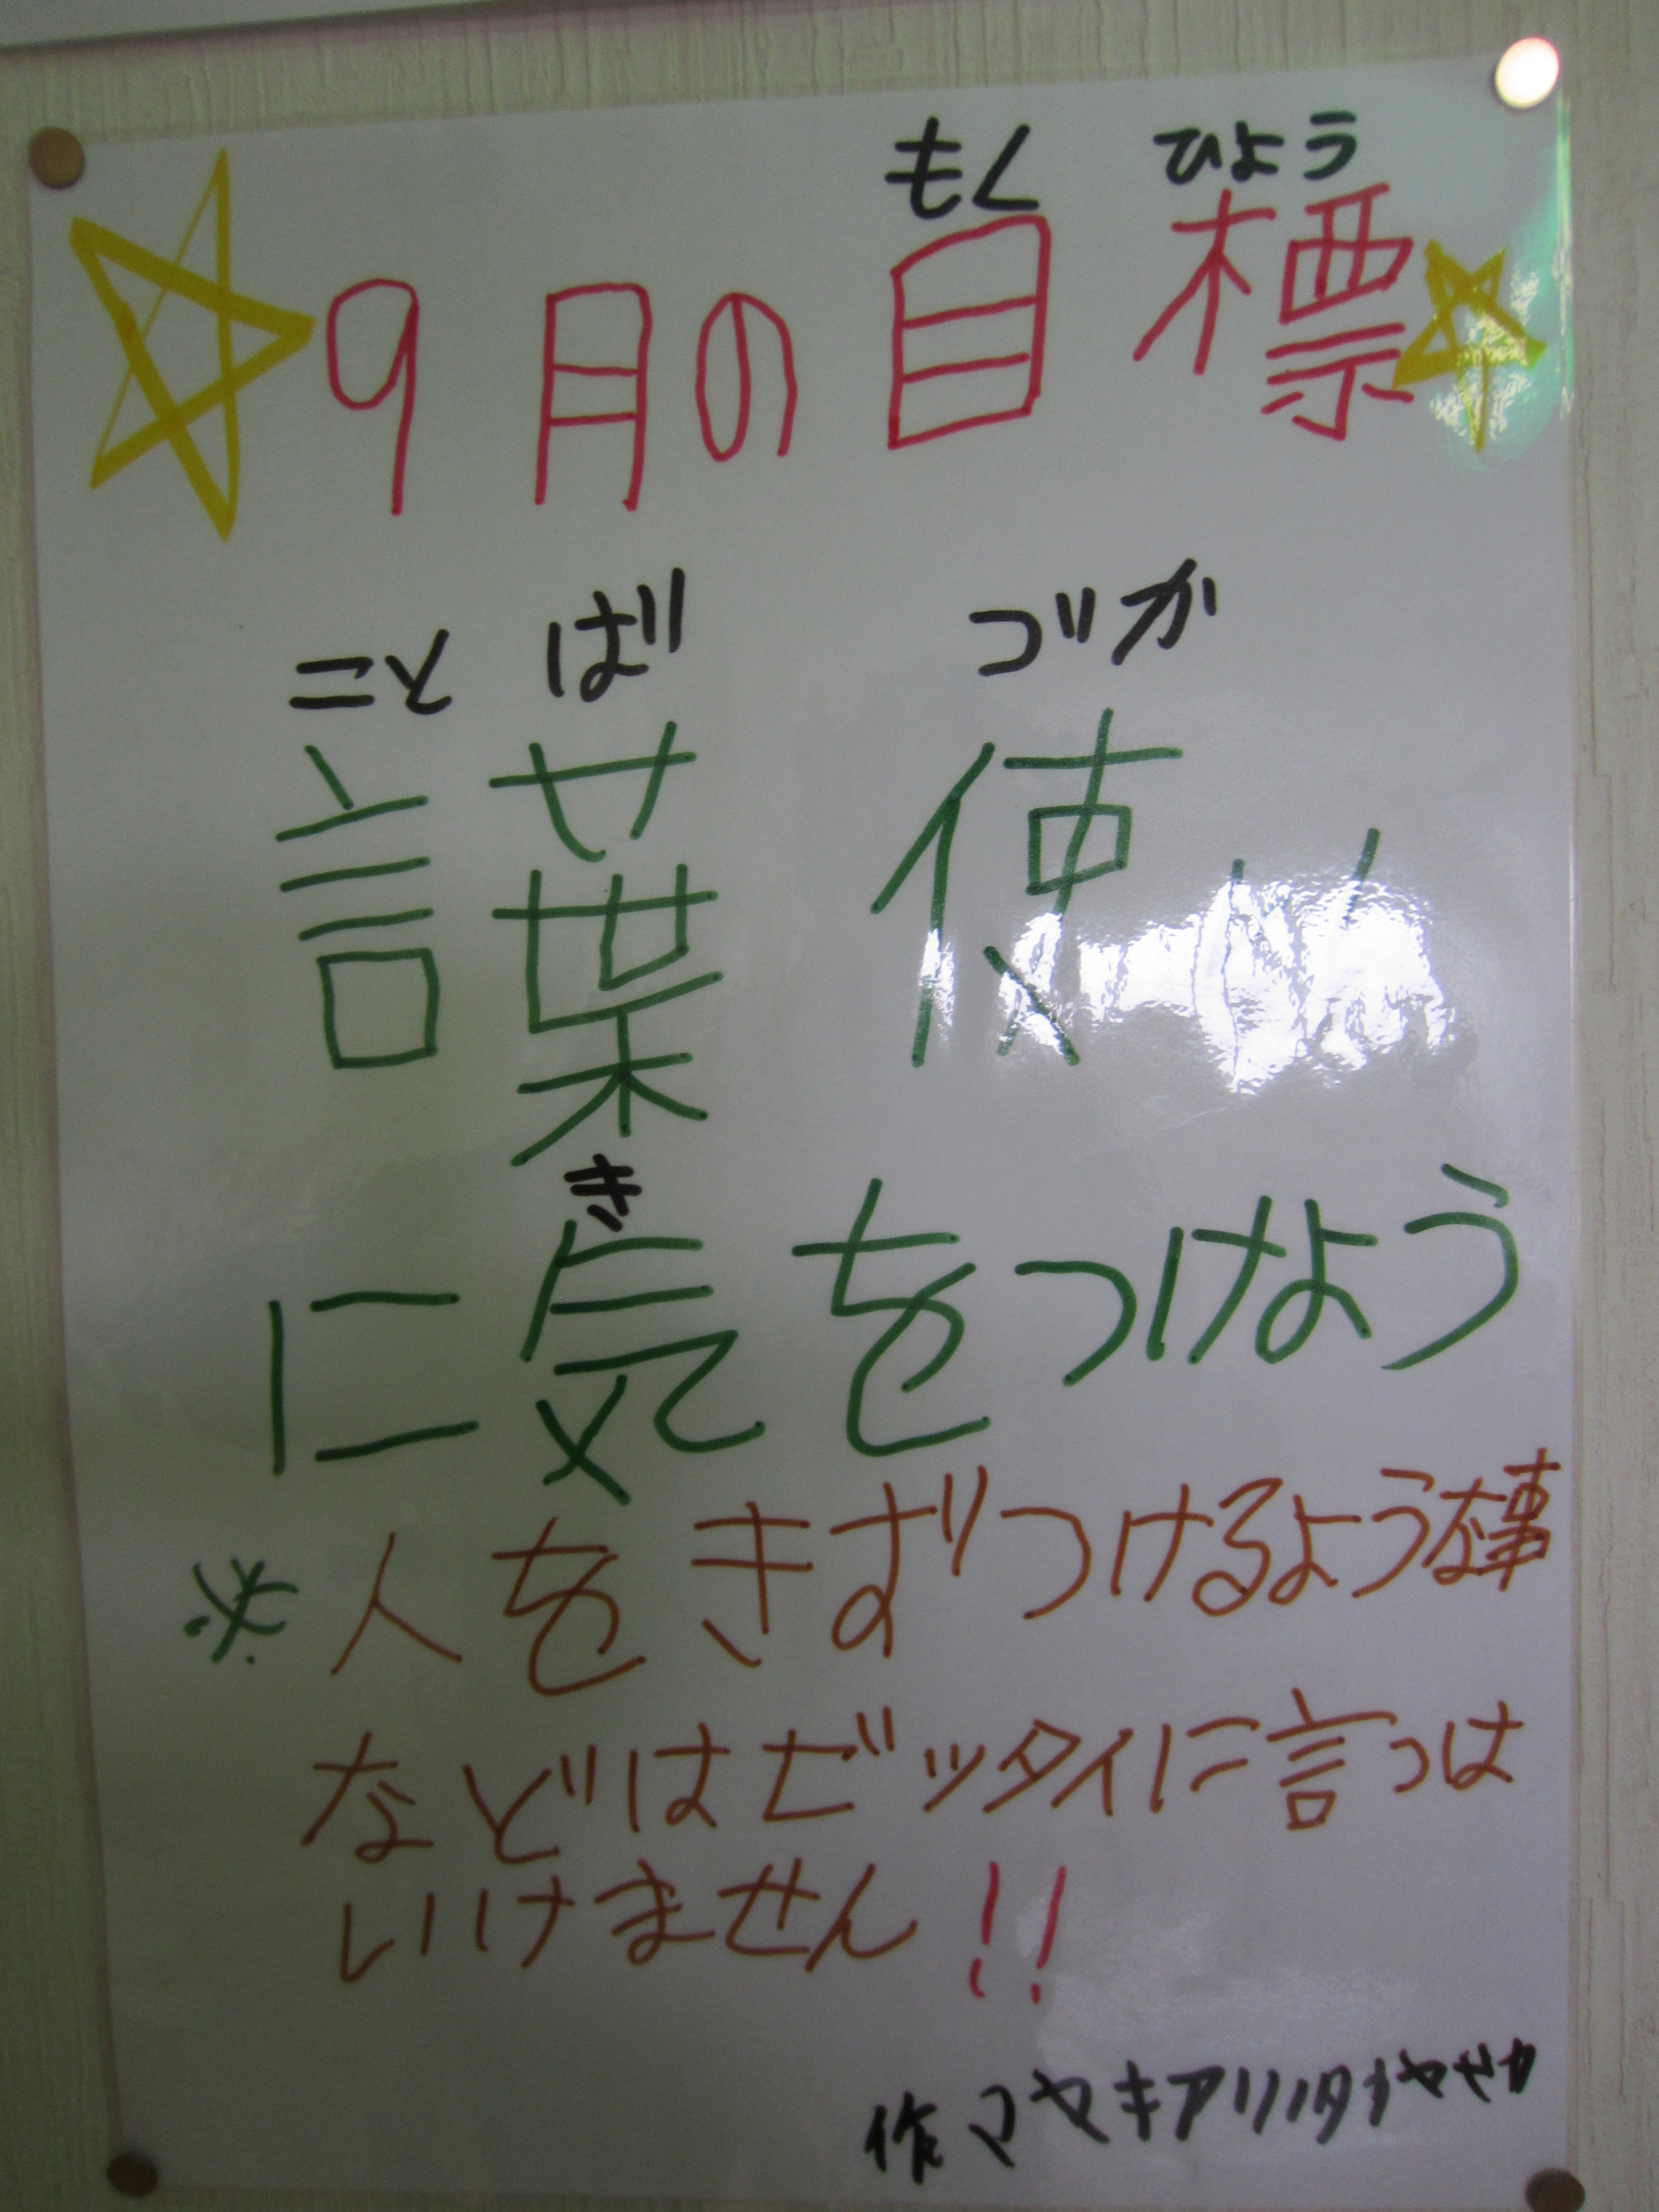 もくひょう
9月の目標
ことばづか
言葉使い
き
に気をつけよう
※人をきずつけるような事
などはゼッタイに言っは
いけません!!
作